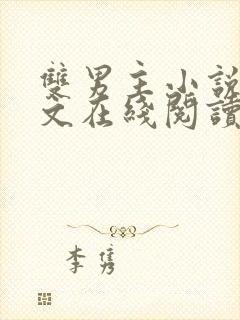 雙男主小說
文在綫閱讀
李隽